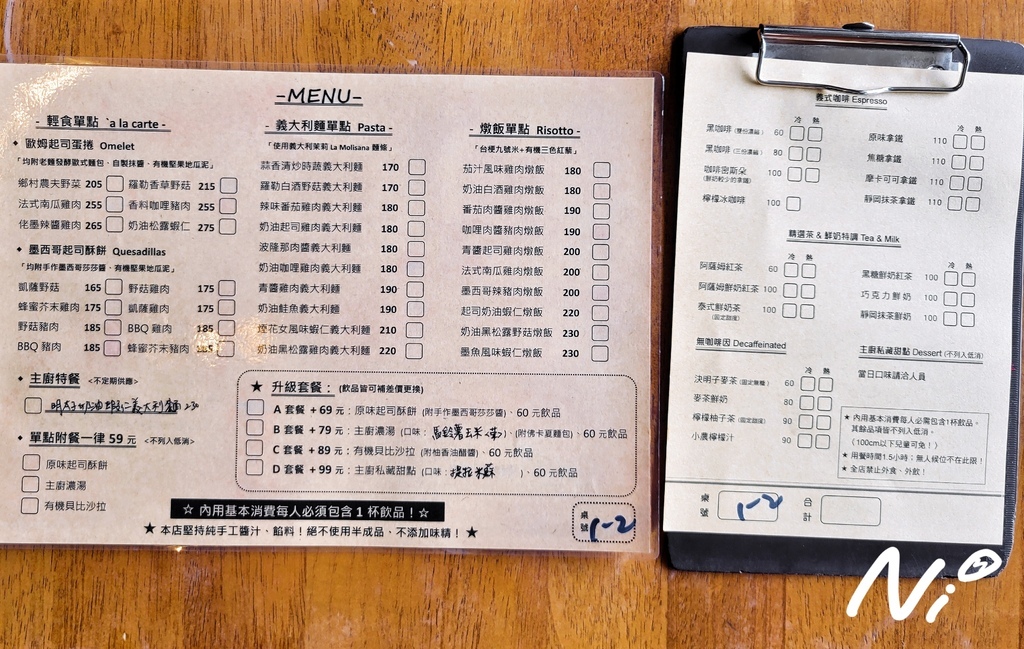 -MENU-
- 輕食單點 `a la carte -
◆ 歐姆起司蛋捲 Omelet
「均附老麵發酵歐式麵包、自製抹醬、有機堅果地瓜泥」
鄉村農夫野菜 205 羅勒香草野菇 215
法式南瓜雞肉 255 香料咖哩豬肉 255
佬墨辣醬雞肉 265 奶油松露蝦仁 275
◆ 墨西哥起司酥餅 Quesadillas
「均附手作墨西哥莎莎醬、有機堅果地瓜泥」
凱薩野菇 165 野菇雞肉 175
蜂蜜芥末雞肉 175 凱薩雞肉 175
野菇豬肉 185 BBQ 雞肉 185
BBQ 豬肉 185 蜂蜜芥末豬肉 185
◆ 主廚特餐 <不定期供應>
明太子奶油蝦仁義大利麵 230
◆ 單點附餐一律 59 元 <不列入低消>
原味起司酥餅
主廚濃湯
有機貝比沙拉
- 義大利麵單點 Pasta -
「使用義大利茉莉 La Molisana 麵條」
蒜香清炒時蔬義大利麵 170
羅勒白酒野菇義大利麵 170
辣味番茄雞肉義大利麵 180
奶油起司雞肉義大利麵 180
波隆那肉醬義大利麵 180
奶油咖哩雞肉義大利麵 180
青醬雞肉義大利麵 190
奶油鮭魚義大利麵 190
煙花女風味蝦仁義大利麵 210
奶油黑松露雞肉義大利麵 220
- 燉飯單點 Risotto -
「台梗九號米+有機三色紅藜」
茄汁風味雞肉燉飯 180
奶油白酒雞肉燉飯 180
番茄肉醬雞肉燉飯 190
咖哩肉醬雞肉燉飯 190
青醬起司雞肉燉飯 200
法式南瓜雞肉燉飯 200
墨西哥辣豬肉燉飯 200
起司奶油蝦仁燉飯 220
奶油黑松露野菇燉飯 230
墨魚風味蝦仁燉飯 230
★ 升級套餐： (飲品皆可補差價更換)
A 套餐 + 69 元：原味起司酥餅 (附手作墨西哥莎莎醬)、60 元飲品
B 套餐 + 79 元：主廚濃湯 (口味：馬鈴薯玉米(葷)) (附佛卡夏麵包)、60 元飲品
C 套餐 + 89 元：有機貝比沙拉 (附柚香油醋醬)、60 元飲品
D 套餐 + 99 元：主廚私藏甜點 (口味：提拉米蘇)、60 元飲品
☆ 內用基本消費每人必須包含 1 杯飲品！☆
★ 本店堅持純手工醬汁、餡料！絕不使用半成品、不添加味精！ ★
桌號 1-2
義式咖啡 Espresso
冷 熱 冷 熱
黑咖啡 (雙份濃縮) 60 原味拿鐵 110
黑咖啡 (三份濃縮) 80 焦糖拿鐵 110
咖啡密斯朵 (鮮奶較少的拿鐵) 100 摩卡可可拿鐵 110
檸檬冰咖啡 100 靜岡抹茶拿鐵 110
精選茶 & 鮮奶特調 Tea & Milk
冷 熱 冷 熱
阿薩姆紅茶 60 黑糖鮮奶紅茶 100
阿薩姆鮮奶紅茶 100 巧克力鮮奶 100
泰式鮮奶茶 (固定甜度) 100 靜岡抹茶鮮奶 100
無咖啡因 Decaffeinated
冷 熱
決明子麥茶 (固定無糖) 60
麥茶鮮奶 80
檸檬柚子茶 (固定甜度) 90
小農檸檬汁 90
主廚私藏甜點 Dessert (不列入低消)
當日口味請洽人員
★ 內用基本消費每人必需包含1杯飲品。
其餘品項皆不列入低消。
（100cm以下兒童可免！）
★ 用餐時間1.5小時；無人候位不在此限！
★ 全店禁止外食、外飲！
桌號 1-2 合計
Ni